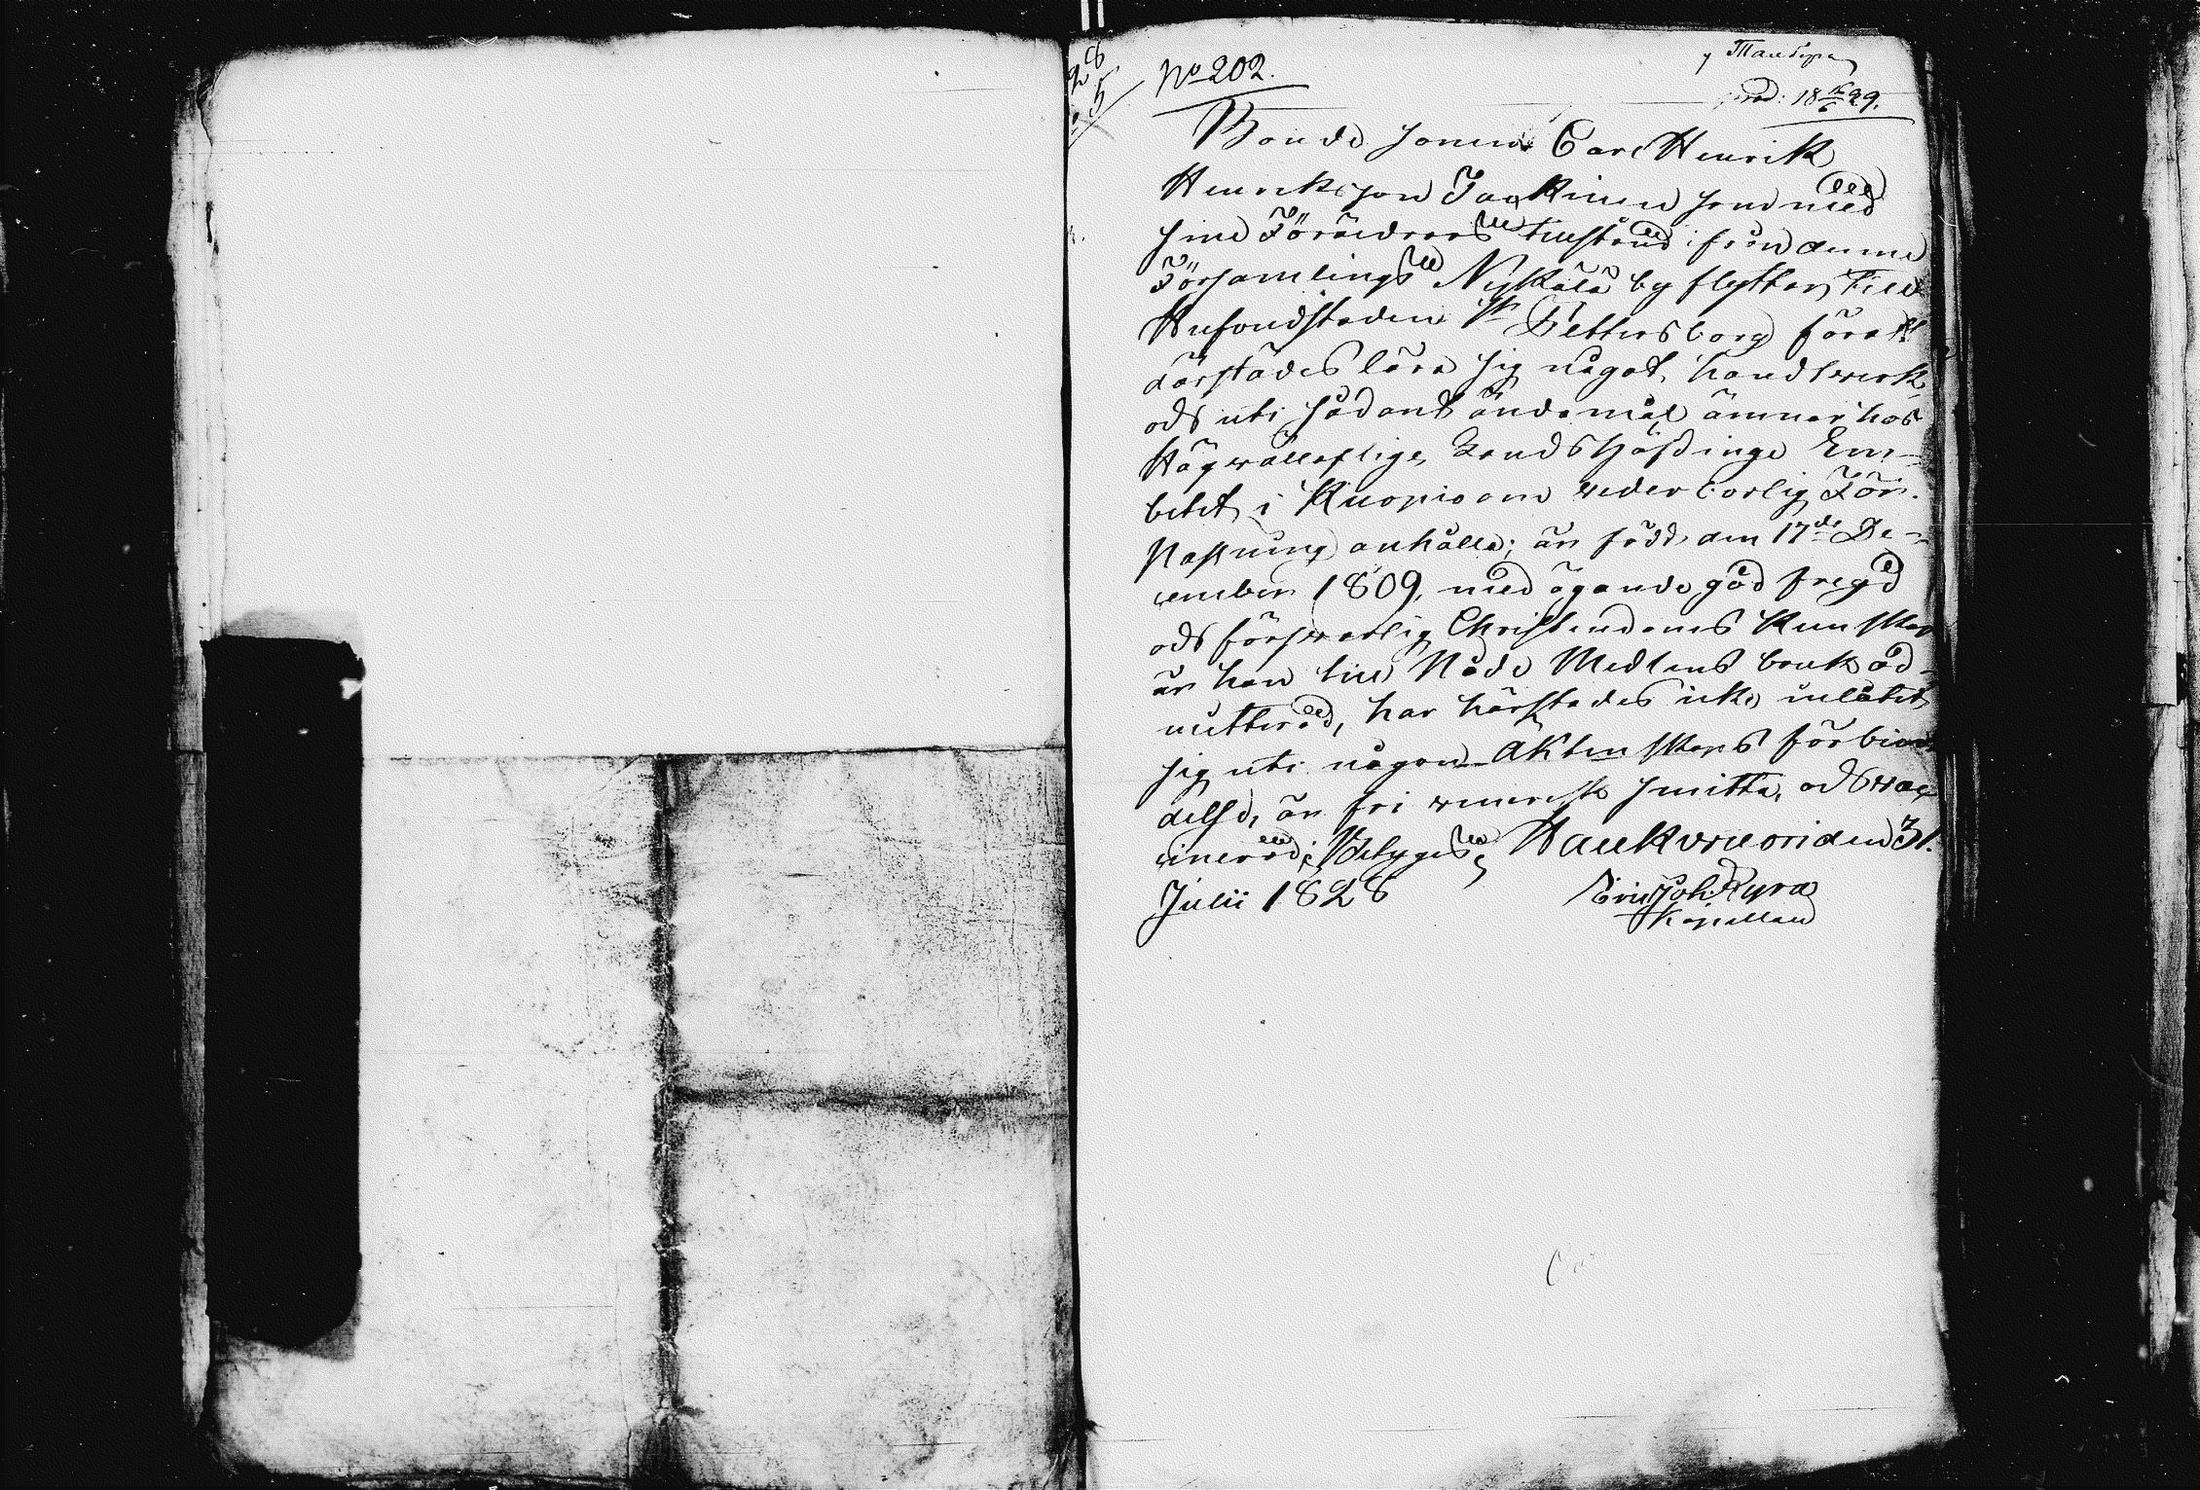 No 202.
у Танбура
prod: 18 16/6 29.
Bonde sonen Carl Henrik
Henriksson Jaakkinen som med
sine Föräldrars tillstånd ifrån denne
Församlings Nykälä by flyttar till
Hufvudstaden St Pettersborg för att
därstädes lära sig något handtverk
och uti sådant ändamål ämnar hos
Högvällofliga Landshöfdinge Em-
betet i Kuopio om vederbörlig För-
passning anhålla; är född den 17de De-
cember 1809, med ägande god fregd
och försvarlig Christendoms kunskap
är han till Nåde Medlens bruk ad-
mitterad, har härstädes icke inlåtit
sig uti någon Äktenskaps förbin-
delse, är fri venerisk smitta, och vac-
cinerad; Betygas, Haukivuori den 31.
Julii 1828
Joh: Kyra
Kapellan